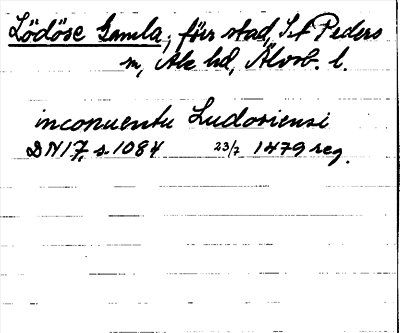 Lödöse Gamla, förr stad, S:t Peders
sn, Ale hd, Älvsb. l.
inconuentu Ludosiensi
DN 17, s. 1084 23/7 1479 reg.